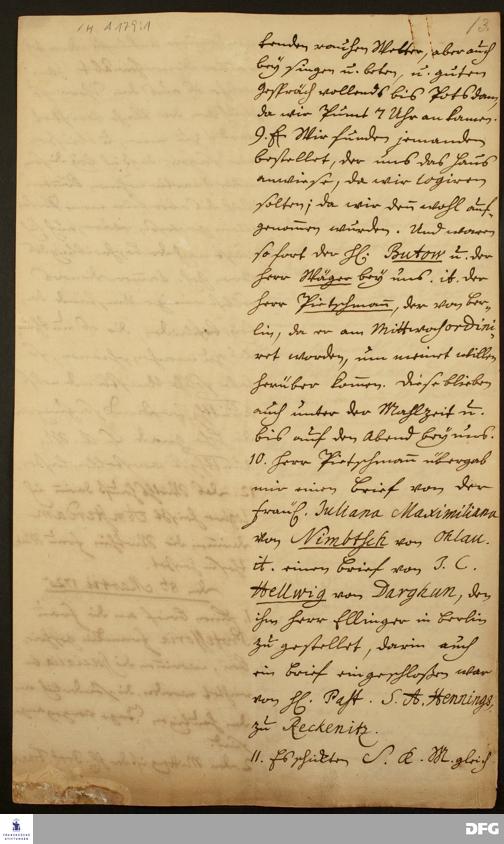 1 H A 179:1
13.
kenden rauhen Wetter, aber auch
bey singen u. beten, u. guten
Gespräch vollends bis Potsdam,
da wir Punct 7 Uhr ankamen.
9. Wir funden jemanden
bestellet, der uns das Haus
anwiese, da wir logiren
solten; da wir den wohl auf-
genomen wurden. Und waren
sofort der H. Butow u. der
Herr Wäger bey uns. it. der
Herr Pietschmann, der von Ber-
lin, da er am Mittwoch ordini-
ret worden, um meinet willen
herüber komen. Diese blieben
auch unter der Mahlzeit u.
bis auf den Abend bey uns.
10. Herr Pietschmann übergab
mir einen Brief von der
Fräul. Juliana Maximiliana
von Nimbtsch von Ohlau.
it. einen Brief von J. C.
Hellwig von Darghun, den
ihm Herr Ellinger in Berlin
zu gestellet, darin auch
ein Brief eingeschloßen war
von H. Past. S. A. Hennings,
zu Reckenitz.
11. Es schickten S. K. M. gleich
FRANCKESCHE STIFTUNGEN
DFG